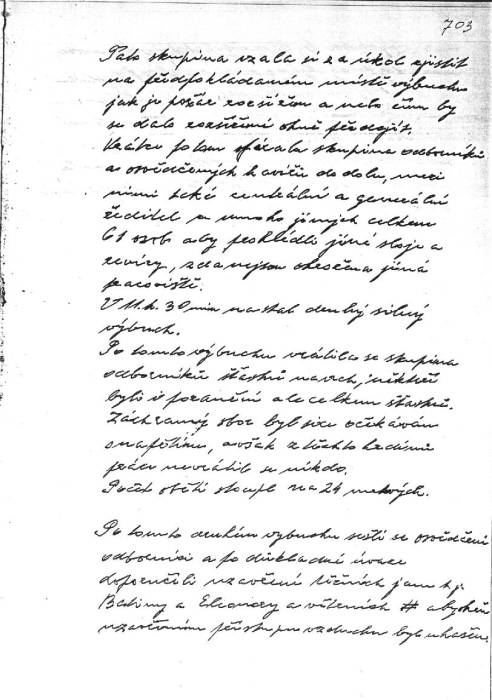 703
Tato skupina vzala si za úkol zjistit
na předpokládaném místě výbuchu
jak je požár rozšířen a nebo čím by
se dalo rozšíření ohně předejít.
Krátce po tom sfárala skupina odborníků
a osvědčených havířů do dolu, mezi
nimi také centrální a generální
ředitel a mnoho jiných celkem
61 osob aby prohlédli jiné sloje a
revíry, zda nejsou ohrožena jiná
pracoviště.
V 11.h. 30 min nastal druhý silný
výbuch.
Po tomto výbuchu vrátila se skupina
odborníků šťastně na vrch, někteří
byli i poranění ale celkem šťastně.
Záchranný sbor byl sice očekáván
s napětím, avšak z těchto hrdinů
práce nevrátil se nikdo.
Počet obětí stoupl na 24 mrtvých.
Po tomto druhém výbuchu sešli se osvědčení
odborníci a po důkladné úvaze
doporučili uzavření těžních jam t.j.
Bahiny a Eleonory a větrních # aby oheň
uzavřením přístupu vzduchu byl uhašen.